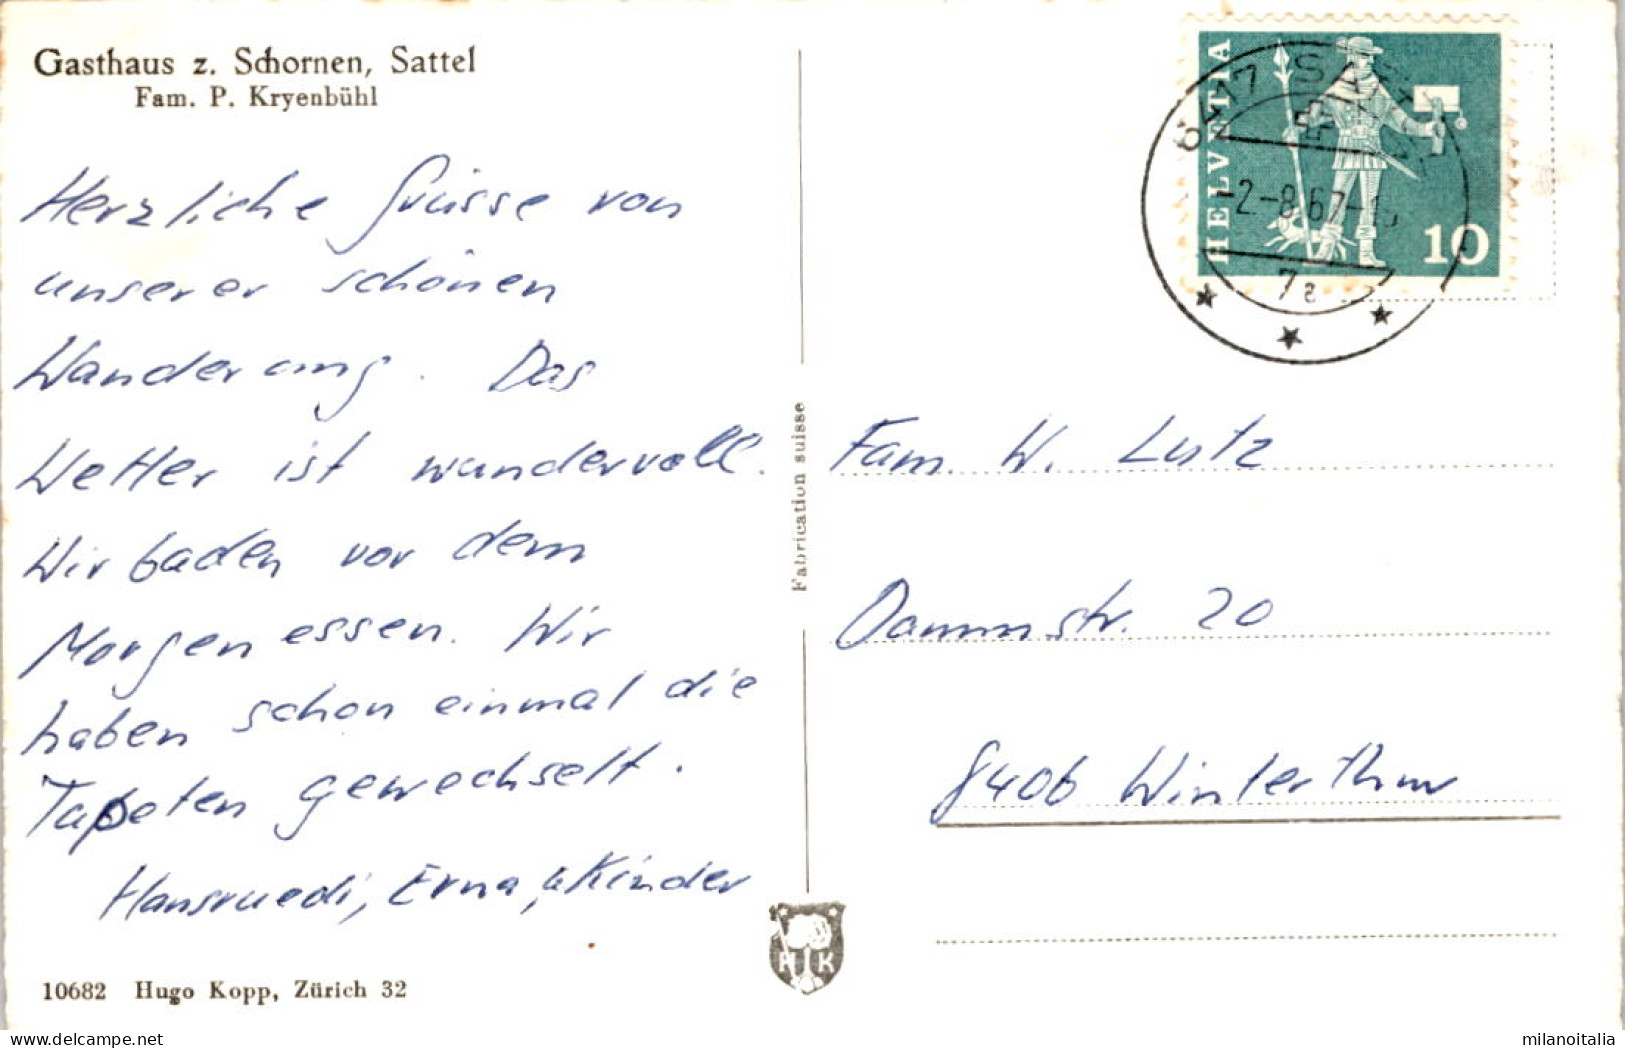 Gasthaus z. Schornen, Sattel
Fam. P. Kryenbühl
Herzliche Grüsse von
unserer schönen
Wanderung. Das
Wetter ist wundervoll.
Wir baden vor dem
Morgenessen. Wir
haben schon einmal die
Tapeten gewechselt.
Hansruedi, Erna, & Kinder
10682 Hugo Kopp, Zürich 32
Fabrication suisse
HK
HELVETIA
10
8417 SATTEL
-2.-8.67-
7a
Fam. W. Lutz
Dammstr. 20
8406 Winterthur
milanoitalia